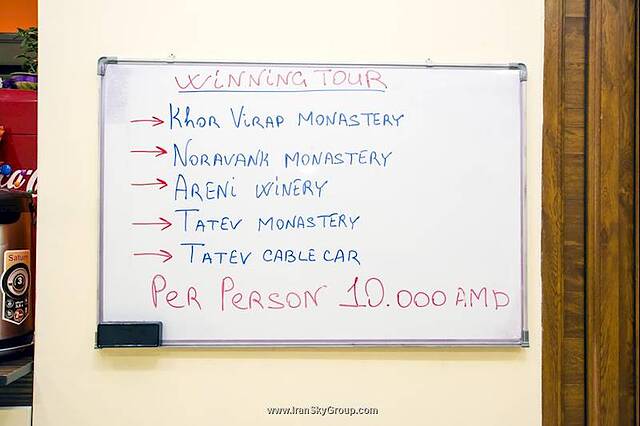 WINNING TOUR
→ KHOR VIRAP MONASTERY
→ NORAVANK MONASTERY
→ ARENI WINERY
→ TATEV MONASTERY
→ TATEV CABLE CAR
PER PERSON 10.000 AMD
Saturn
www.IranSkyGroup.com